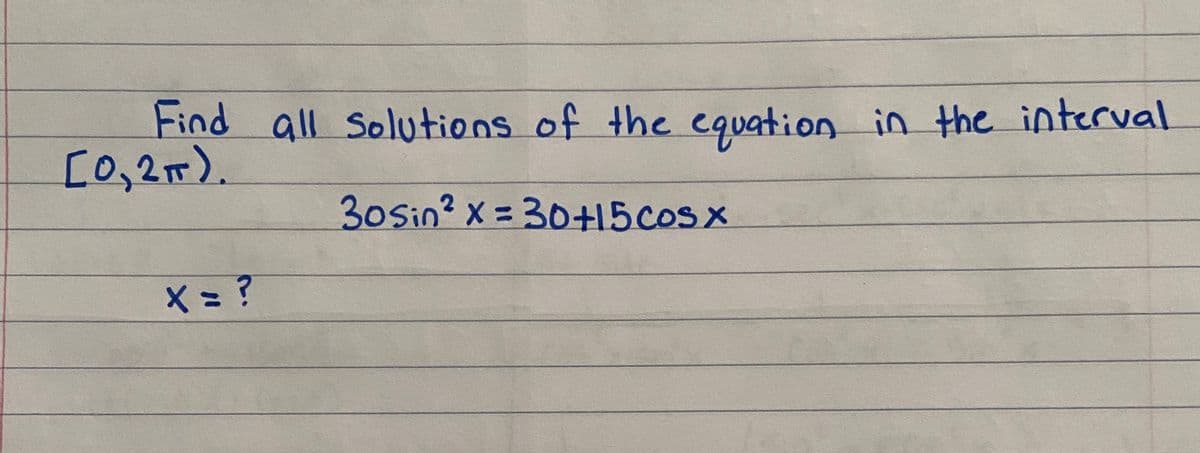 Find all Solutions of the equation in the interval
[0,2π).
30sin² x = 30+15cos x
x = ?